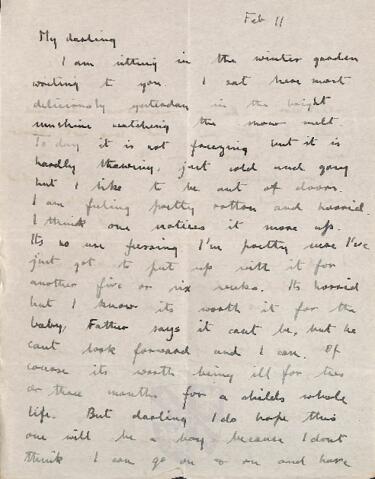 Feb 11
My darling
I am sitting in the winter garden
writing to you. I sat here most
deliciously yesterday in the bright
sunshine watching the snow melt
To day it is not freezing but it is
hardly thawing, just cold and grey
but I like to be out of doors.
I am feeling pretty rotten and horrid.
I think one notices it more up.
Its no use fussing I'm pretty sure I've
just got to put up with it for
another five or six weeks. Its horrid
but I know its worth it for the
baby, Father says it cant be, but he
cant look forward and I can. Of
course its worth being ill for two
or three months for a childs whole
life. But darling I do hope this
one will be a boy because I dont
think I can go on and on and have